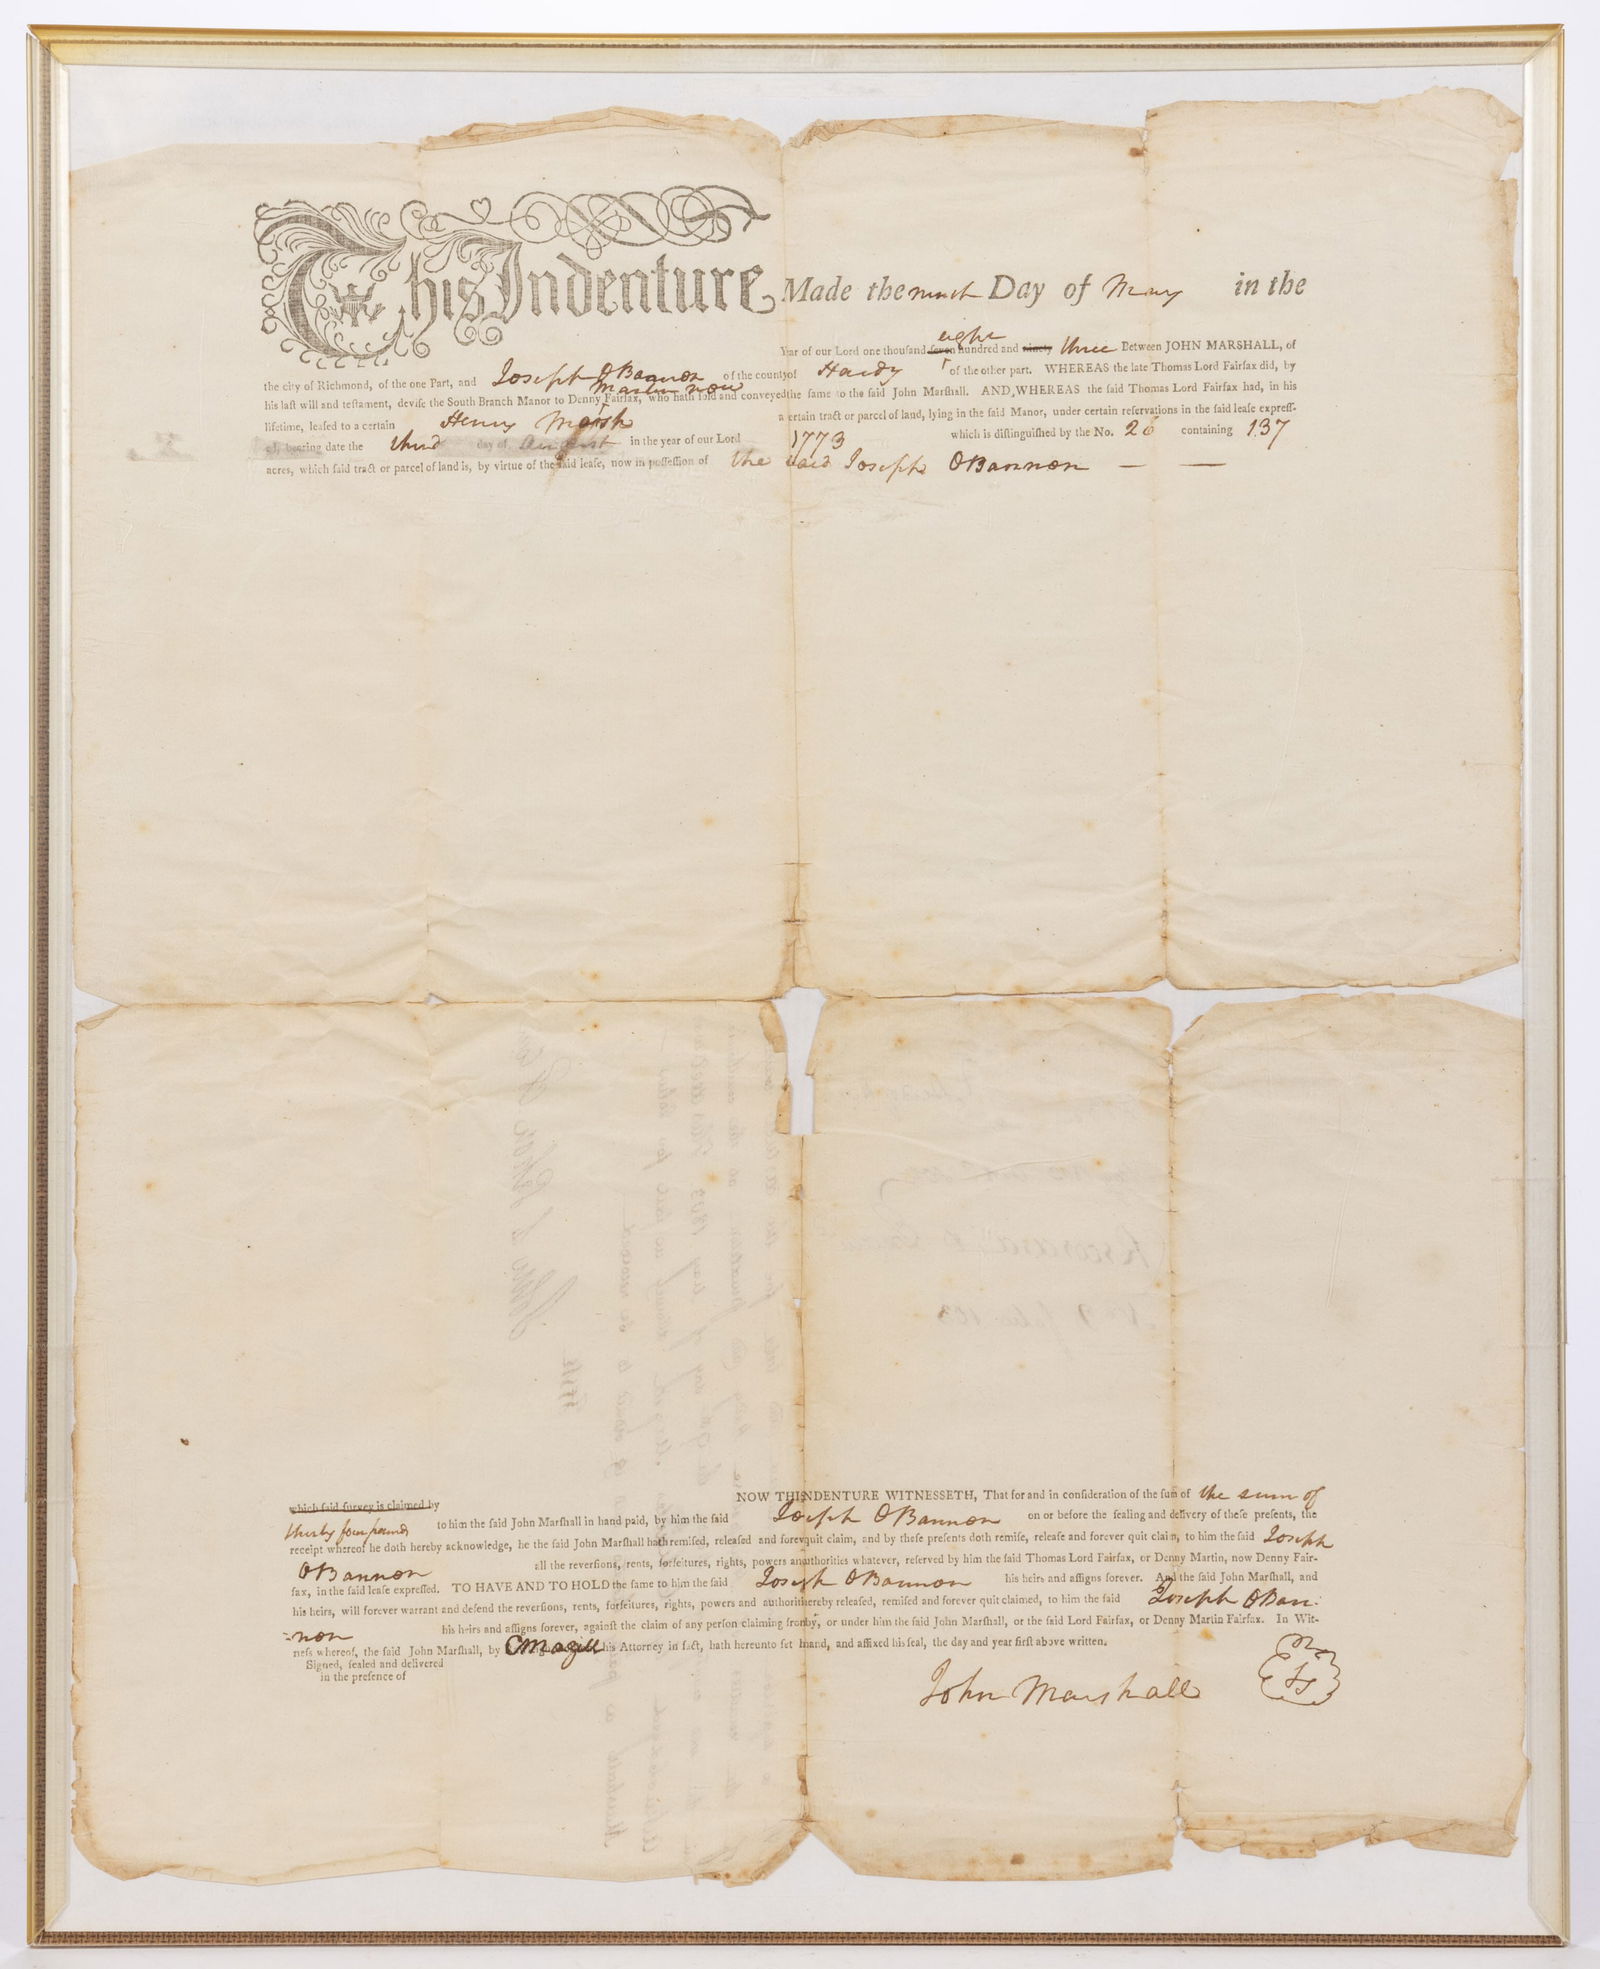 This Indenture Made the ninth Day of May in the
Year of our Lord one thousand seven eight hundred and ninety three Between JOHN MARSHALL, of
the city of Richmond, of the one Part, and Joseph OBannon of the county of Hardy of the other part. WHEREAS the late Thomas Lord Fairfax did, by
his laſt will and teſtament, deviſe the South Branch Manor to Denny Martin now Fairfax, who hath ſold and conveyed the ſame to the ſaid John Marſhall. AND WHEREAS the ſaid Thomas Lord Fairfax had, in his
lifetime, leaſed to a certain Henry Marsh a certain tract or parcel of land, lying in the ſaid Manor, under certain reſervations in the ſaid leaſe expreſſ-
ed, bearing date the third day of August in the year of our Lord 1773 which is diſtinguiſhed by the No. 26 containing 137
acres, which ſaid tract or parcel of land is, by virtue of the ſaid leaſe, now in poſſeſſion of the said Joseph OBannon — —
which ſaid ſurvey is claimed by NOW THIS INDENTURE WITNESSETH, That for and in conſideration of the ſum of the sum of
thirty four pounds to him the ſaid John Marſhall in hand paid, by him the ſaid Joseph OBannon on or before the ſealing and delivery of theſe preſents, the
receipt whereof he doth hereby acknowledge, he the ſaid John Marſhall hath remiſed, releaſed and forever quit claim, and by theſe preſents doth remiſe, releaſe and forever quit claim, to him the ſaid Joseph
OBannon all the reverſions, rents, forfeitures, rights, powers and authorities whatever, reſerved by him the ſaid Thomas Lord Fairfax, or Denny Martin, now Denny Fair-
fax, in the ſaid leaſe expreſſed. TO HAVE AND TO HOLD the ſame to him the ſaid Joseph OBannon his heirs and aſſigns forever. And the ſaid John Marſhall, and
his heirs, will forever warrant and defend the reverſions, rents, forfeitures, rights, powers and authorities hereby releaſed, remiſed and forever quit claimed, to him the ſaid Joseph OBan-
-non his heirs and aſſigns forever, againſt the claim of any perſon claiming from, by, or under him the ſaid John Marſhall, or the ſaid Lord Fairfax, or Denny Martin Fairfax. In Wit-
neſs whereof, the ſaid John Marſhall, by CMagill his Attorney in fact, hath hereunto ſet hand, and affixed his ſeal, the day and year firſt above written.
Signed, ſealed and delivered
in the preſence of
John Marshall